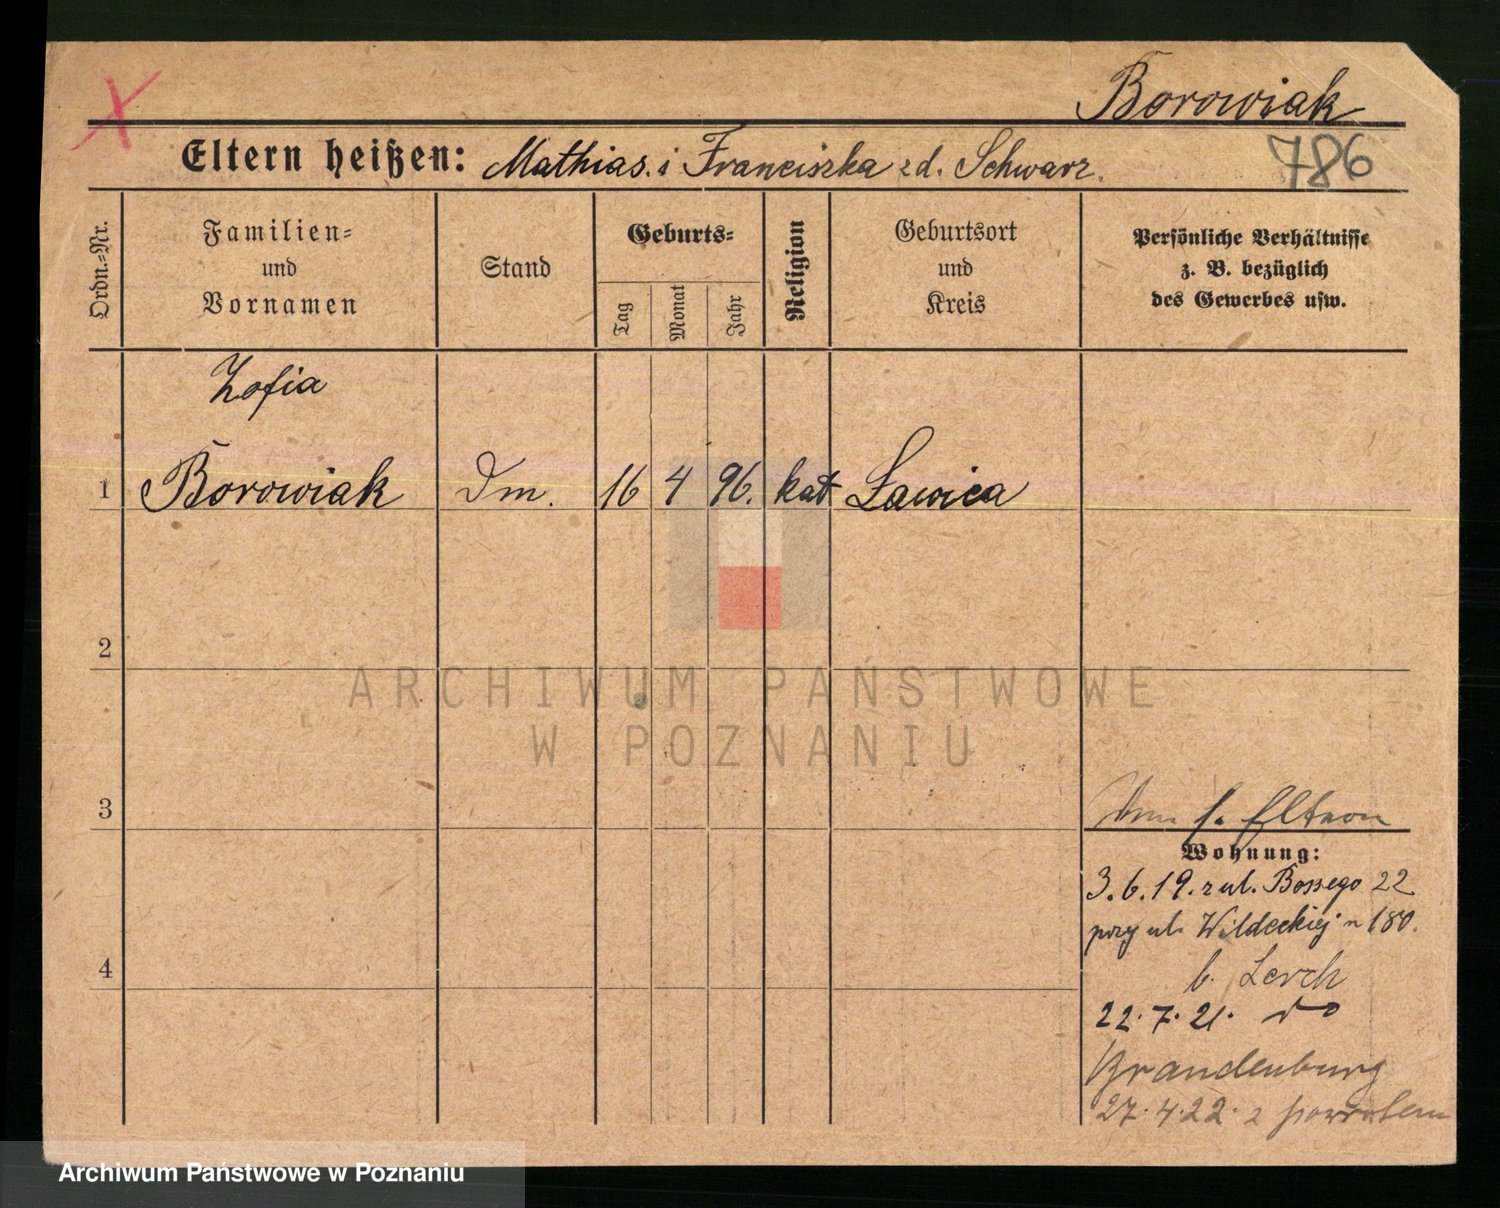 Borowiak
Eltern heißen: Mathias. i Franciszka zd. Schwarz.
786
Ordn.-Nr.
Familien-
und
Vornamen
Stand
Geburts-
Tag
Monat
Jahr
Religion
Geburtsort
und
Kreis
Persönliche Verhältnisse
z. B. bezüglich
des Gewerbes usw.
Zofia
1 Borowiak Dm. 16 4 96. kat Ławica
2
3
4
f. Eltern
Wohnung:
3.6.19. z ul. Bossego 22
przy ul. Wildeckiej n 180.
b. Lerch
22.7.21. do
Brandenburg
27.4.22. z powrotem
ARCHIWUM PAŃSTWOWE
W POZNANIU
Archiwum Państwowe w Poznaniu